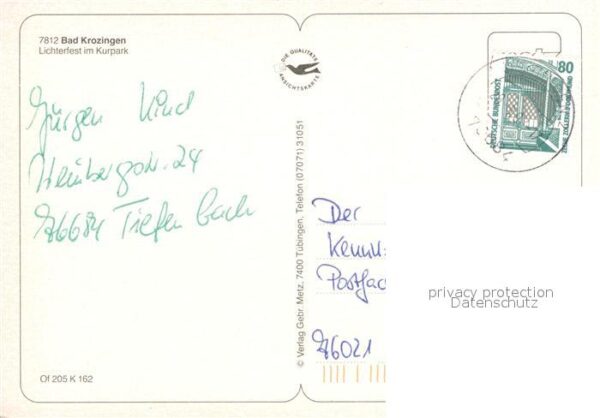 7812 Bad Krozingen
Lichterfest im Kurpark
DIE QUALITÄTS
ANSICHTSKARTE
80
DEUTSCHE BUNDESPOST
ZECHE ZOLLERN II DORTMUND
Jürgen Kind
24
76684 Tiefenbach
© Verlag Gebr. Metz, 7400 Tübingen, Telefon (07071) 31051
Der
Kennn
Postfac
76021
privacy protection
Datenschutz
Of 205 K 162